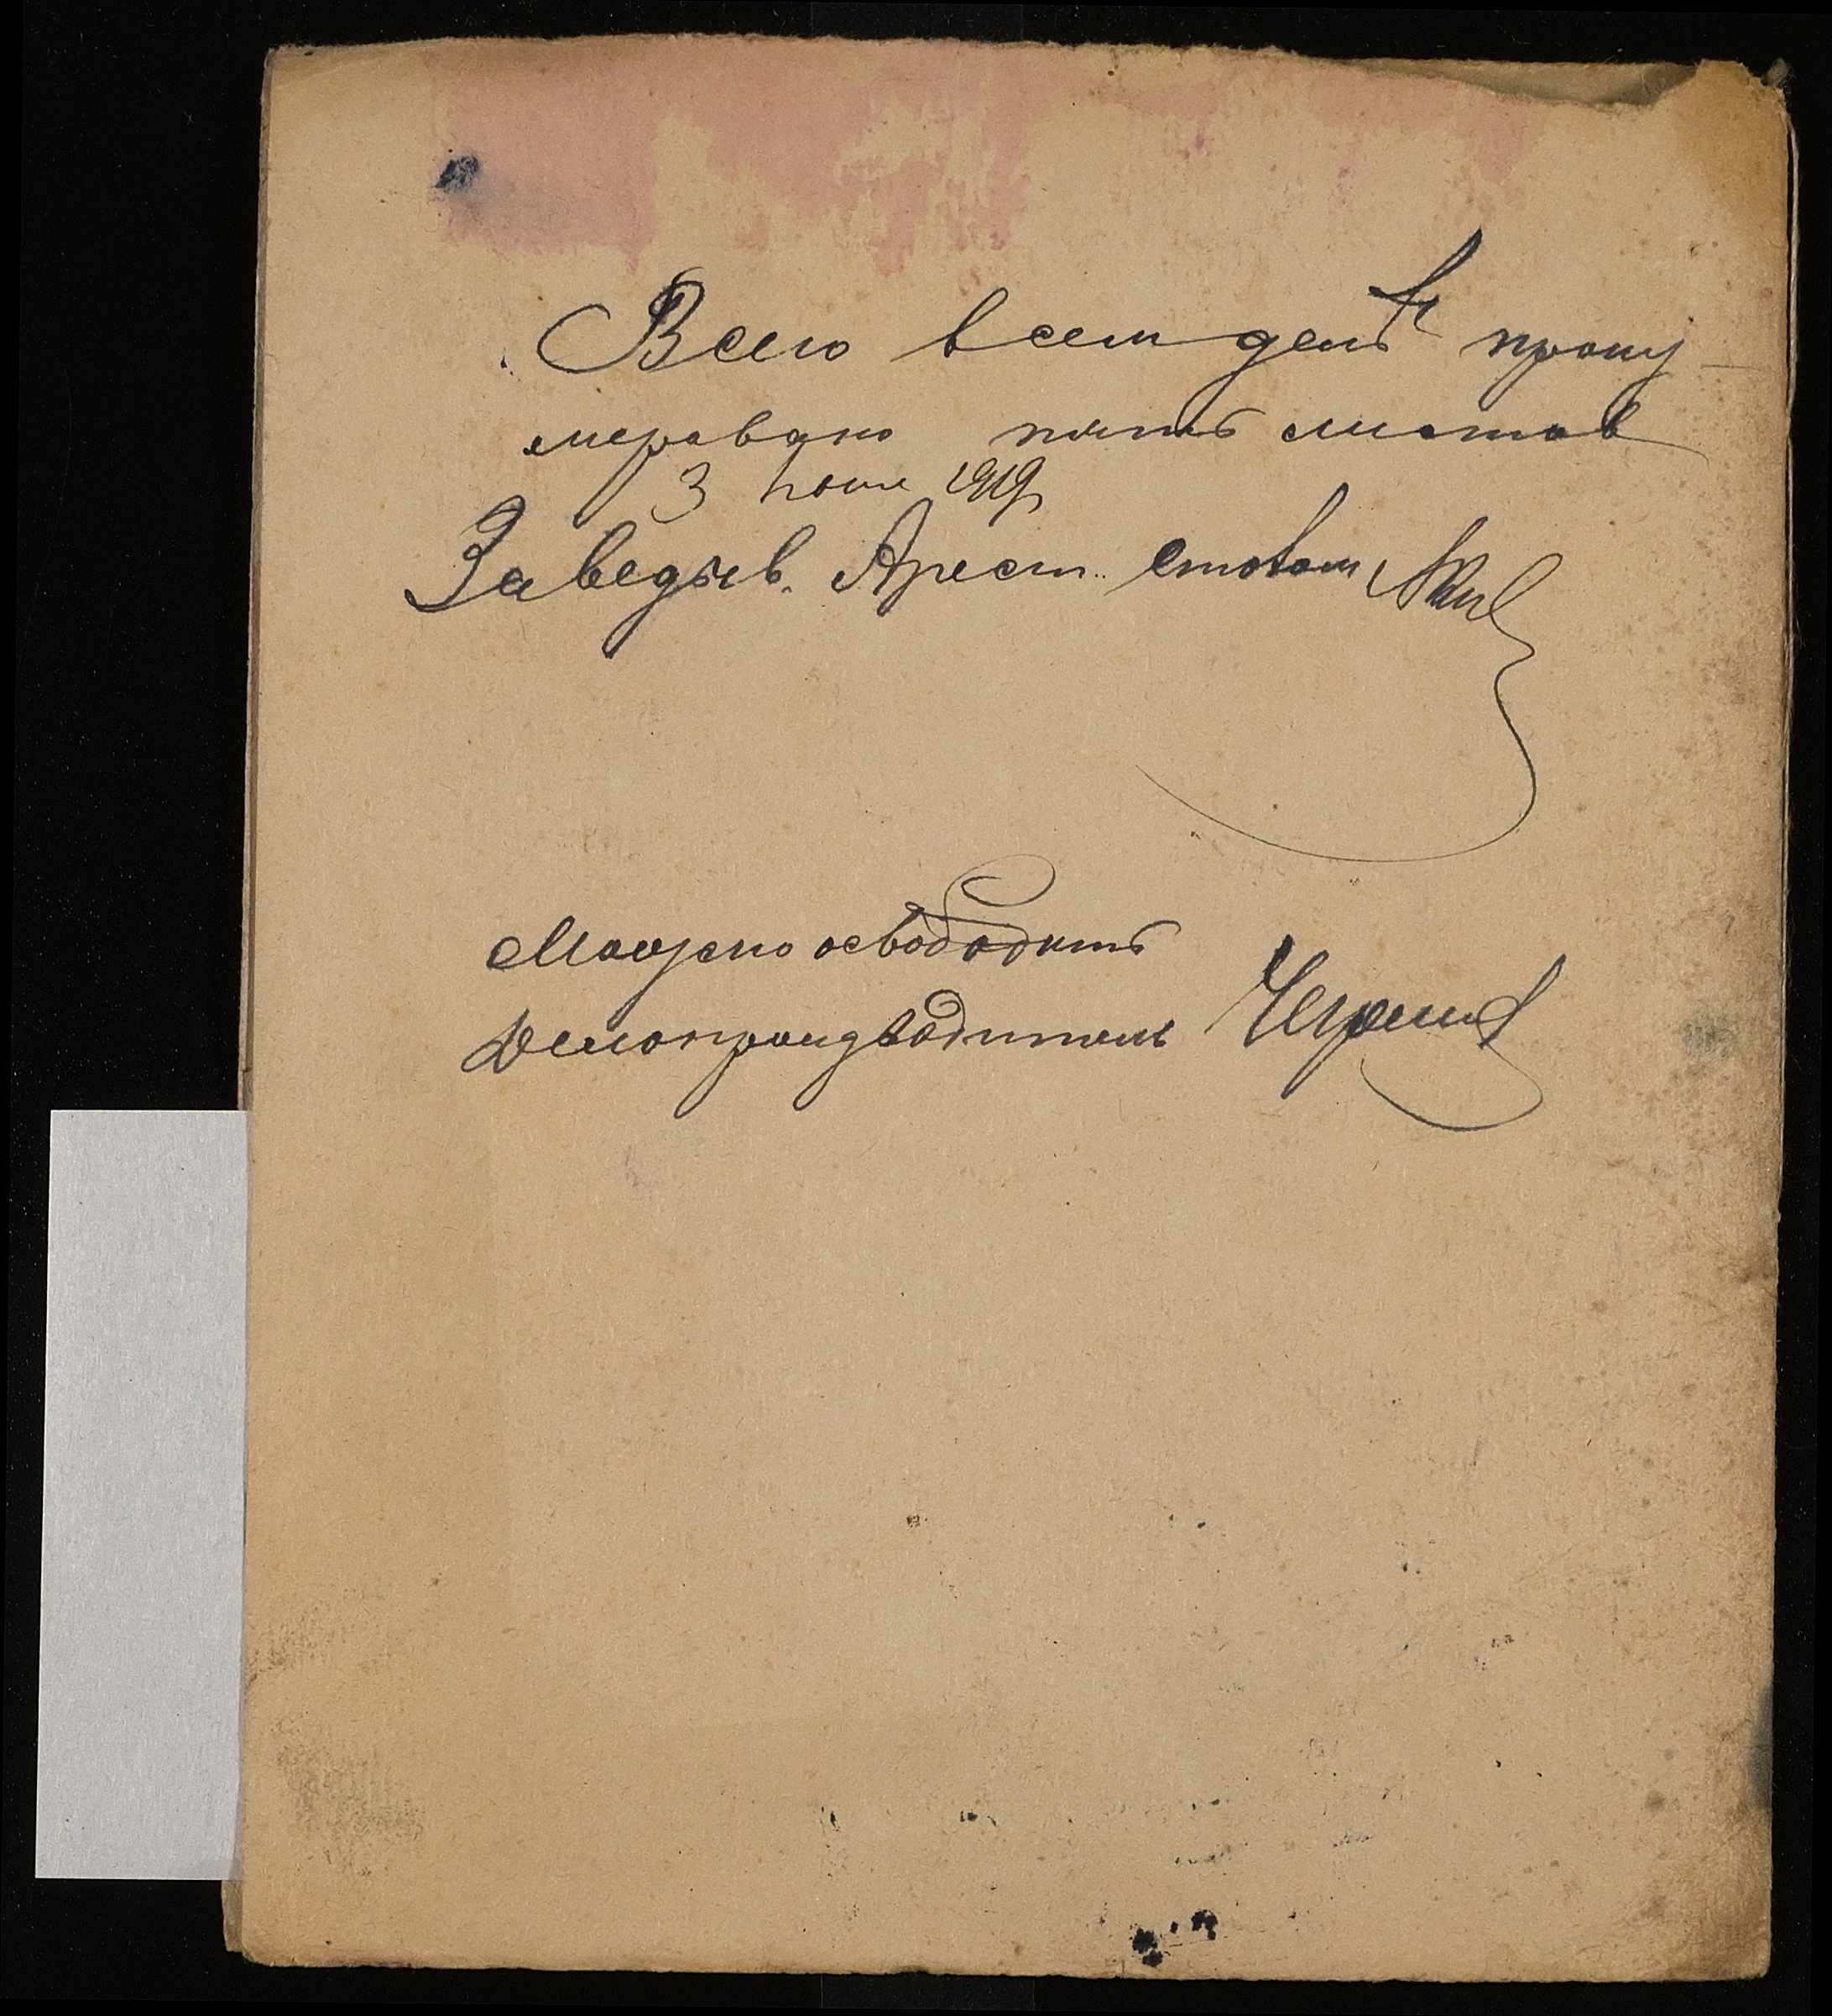 Всего в сем деле прону
меровано пять листов
3 июня 1919
Заведыв. Арест. столом
Можно освободить
Делопроизводитель